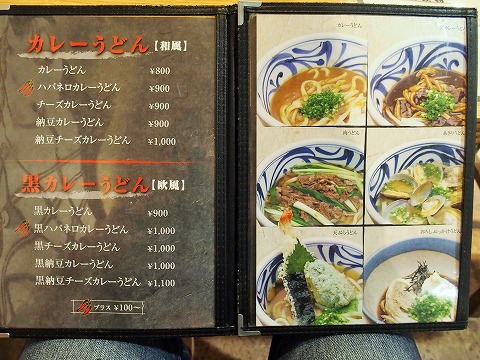 カレーうどん【和風】
カレーうどん ¥800
ハバネロカレーうどん ¥900
チーズカレーうどん ¥900
納豆カレーうどん ¥900
納豆チーズカレーうどん ¥1,000
黒カレーうどん【欧風】
黒カレーうどん ¥900
黒ハバネロカレーうどん ¥1,000
黒チーズカレーうどん ¥1,000
黒納豆カレーうどん ¥1,000
黒納豆チーズカレーうどん ¥1,100
プラス ¥100〜
カレーうどん
カレーうどん
肉うどん
あさりうどん
天ぷらうどん
おろしぶっかけうどん